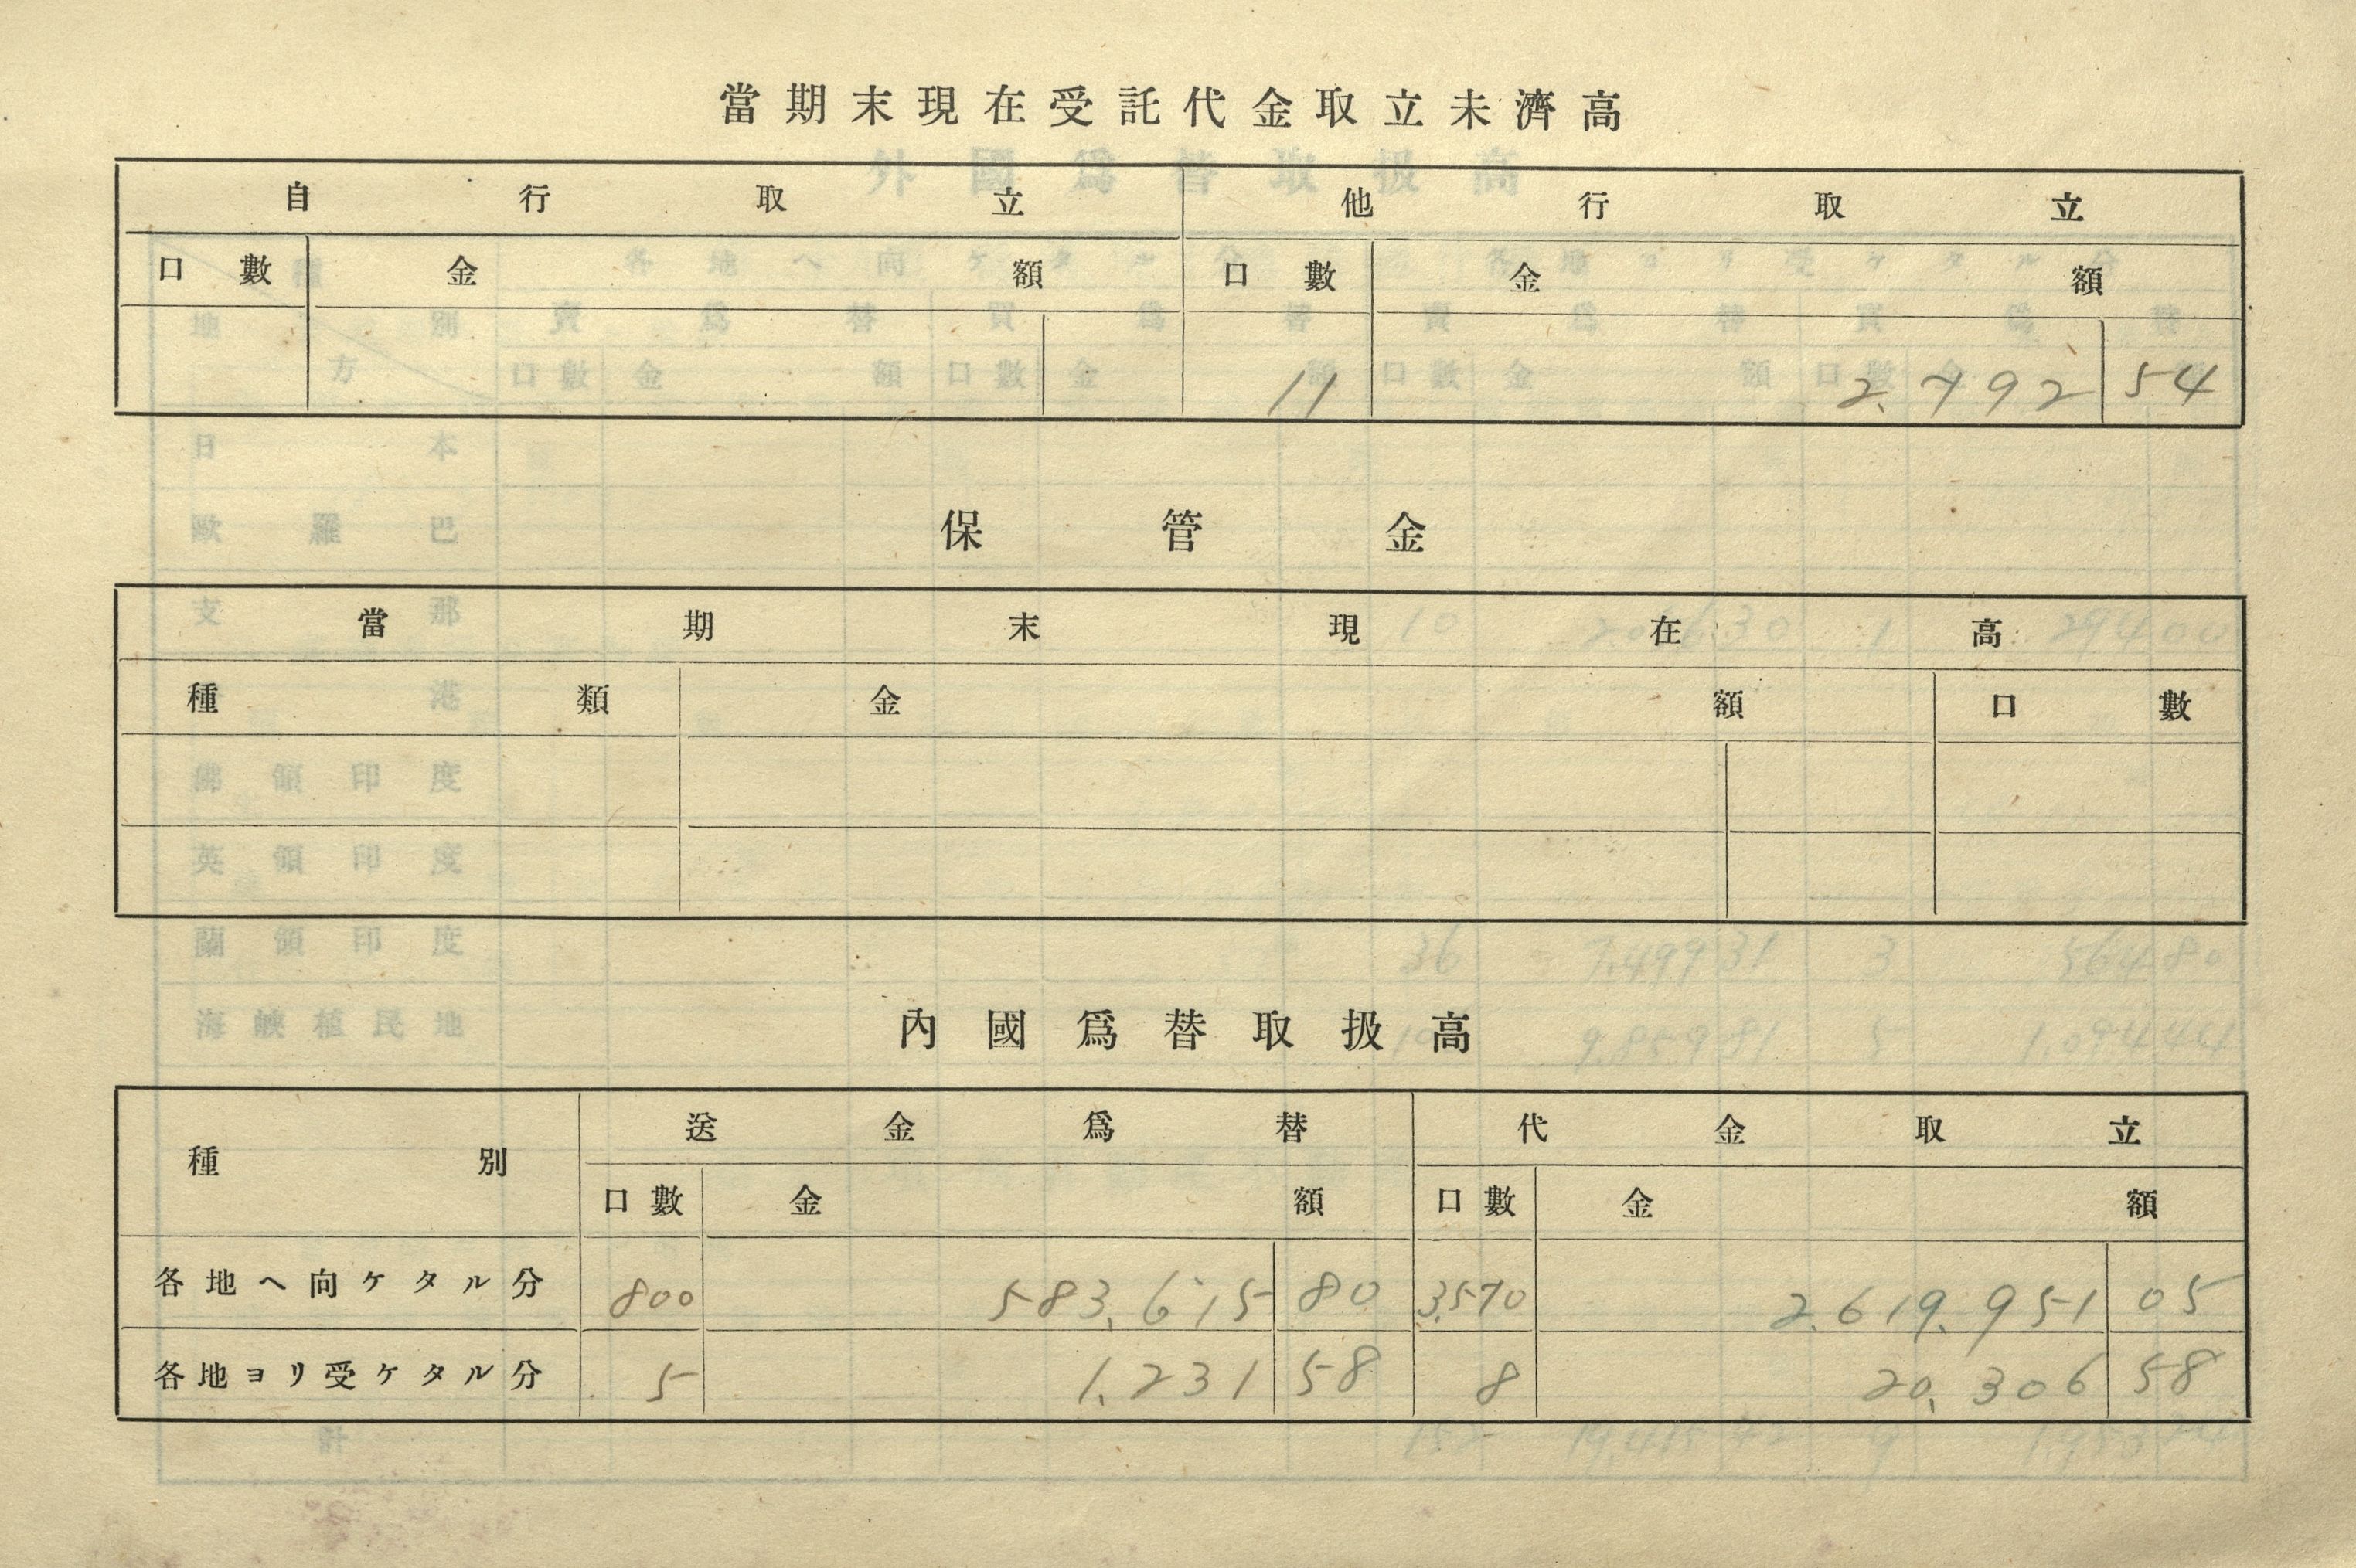 當期末現在受託代金取立未濟高
自行取立 他行取立
口數 金額 口數 金額
11 2,792 54
保管金
當期末現在高
種類 金額 口數
內國爲替取扱高
種別 送金爲替 代金取立
口數 金額 口數 金額
各地へ向ケタル分 800 583,615 80 3,570 2,619,951 05
各地ヨリ受ケタル分 5 1,231 58 8 20,306 58